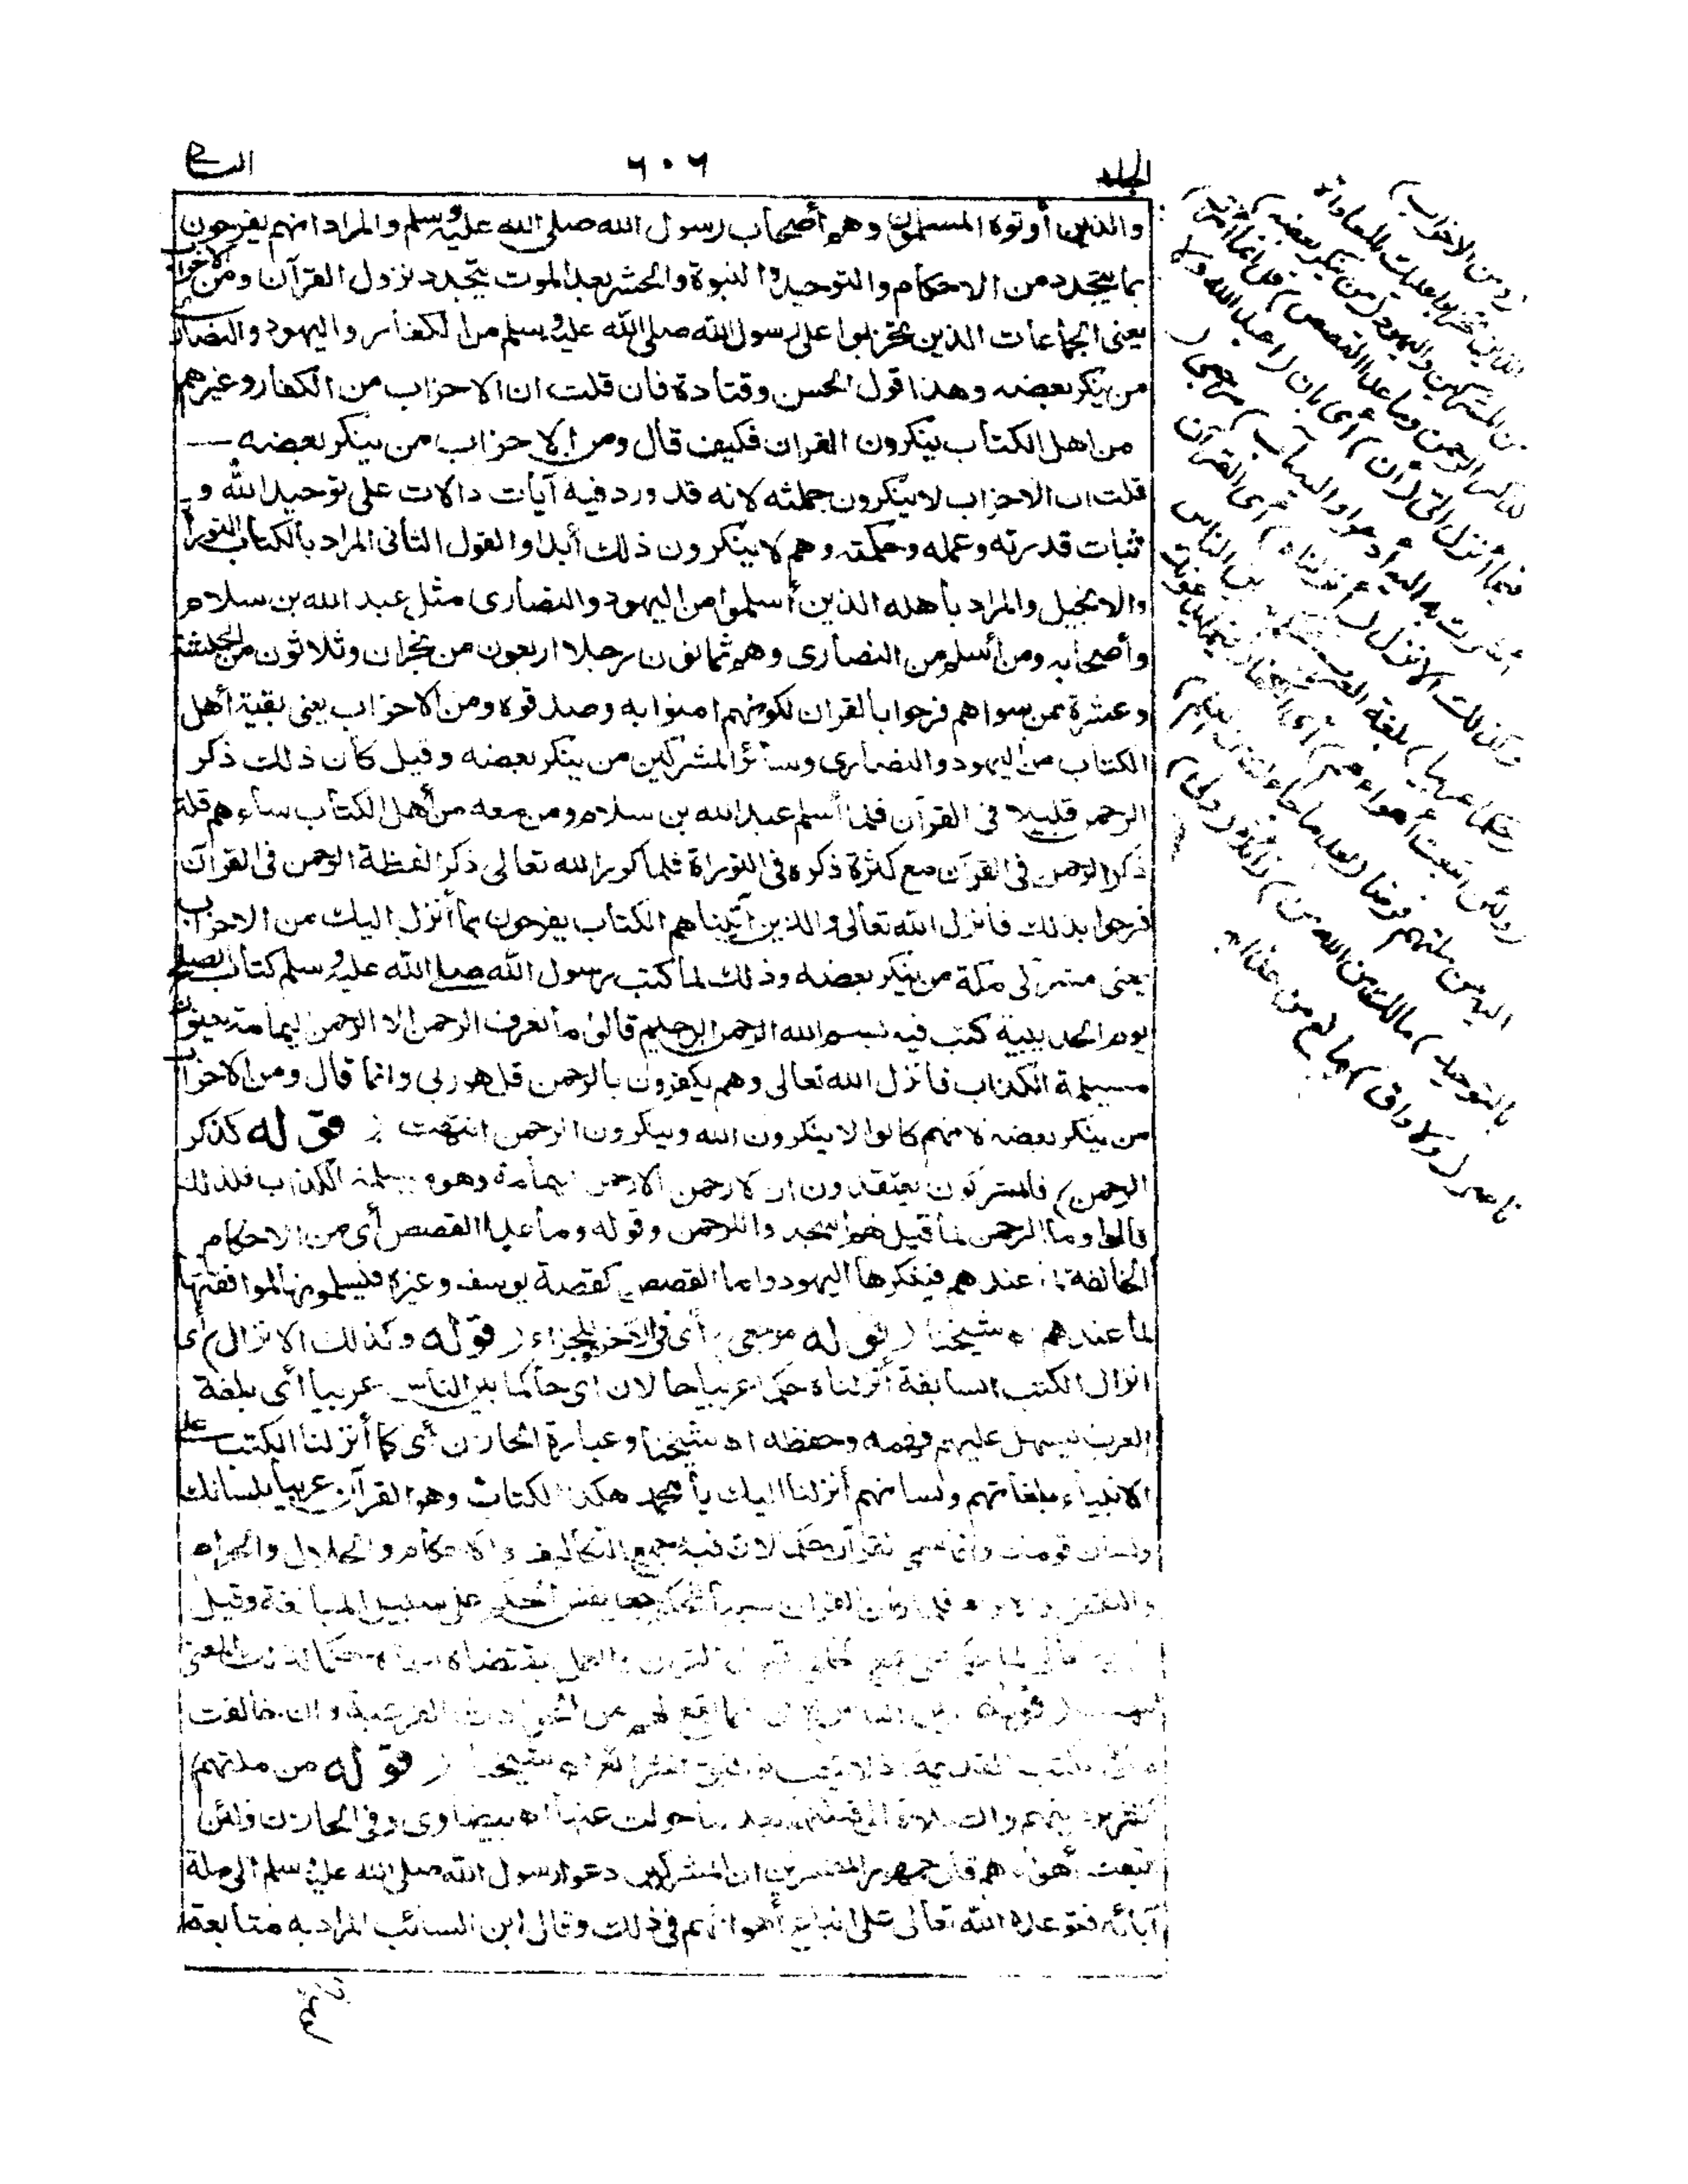 الجلد ٦٠٦ الساب
والذين أوتوه المسلمون وهم أصحاب رسول الله صلى الله عليه وسلم والمراد انهم يفرحون
بما يتجدد من الاحكام والتوحيد والنبوة والحشر بعد الموت بتجدد نزول القرآن ومن الاحزاب
يعنى الجماعات الذين تحزبوا على رسول الله صلى الله عليه وسلم من الكفار واليهود والنصارى
من ينكر بعضه وهذا قول الحسن وقتادة فان قلت ان الاحزاب من الكفار وغيرهم
من اهل الكتاب ينكرون القران فكيف قال ومن الاحزاب من ينكر بعضه
قلت ان الاحزاب لا ينكرون جملته لانه قد ورد فيه آيات دالات على توحيد الله و
ثبات قدرته وعمله وحكمته وهم لا ينكرون ذلك أبدا والقول الثانى المراد بالكتاب التوراة
والانجيل والمراد بأهله الذين أسلموا من اليهود والنصارى مثل عبد الله بن سلام
وأصحابه ومن أسلم من النصارى وهم ثمانون رجلا اربعون من نجران وثلاثون من الحبشة
وعشرة ممن سواهم فرحوا بالقران لكونهم امنوا به وصدقوه ومن الاحزاب يعنى بقية أهل
الكتاب من اليهود والنصارى وسائر المشركين من ينكر بعضه وقيل كان ذلك ذكر
الرحمن قليلا فى القرآن فلما أسلم عبد الله بن سلام ومن معه من أهل الكتاب ساءهم قلة
ذكر الرحمن فى القرآن مع كثرة ذكره فى التوراة فلما كرر الله تعالى ذكر لفظة الرحمن فى القرآن
فرحوا بذلك فأنزل الله تعالى والذين آتيناهم الكتاب يفرحون بما أنزل اليك من الاحزاب
يعنى مشركى مكة من ينكر بعضه وذلك لما كتب رسول الله صلى الله عليه وسلم كتاب الصلح
يوم الحديبية كتب فيه بسم الله الرحمن الرحيم قالوا ما نعرف الرحمن الا الرحمن اليمامة يعنون
مسيلمة الكذاب فأنزل الله تعالى وهم يكفرون بالرحمن قل هو ربى وانما قال ومن الاحزاب
من ينكر بعضه لانهم كانوا لا ينكرون الله وينكرون الرحمن انتهت ( قوله كذكر
الرحمن) فالمشركون يعتقدون ان لا رحمن الا رحمن اليمامة وهو مسيلمة الكذاب فلذلك
قالوا وما الرحمن لما قيل لهم اسجدوا للرحمن وقوله وما عدا القصص أى من الاحكام
المخالفة لما عندهم فينكرها اليهود واما القصص كقصة يوسف وغيره فيسلمونها لموافقتها
لما عندهم اه شيخنا ( قوله مرجعى) أى فى الآخرة للجزاء ( قوله وكذلك الانزال) أى
انزال الكتب السابقة أنزلناه حكما عربيا حالان اى حاكما بين الناس عربيا أى بلغة
العرب ليسهل عليهم فهمه وحفظه اه شيخنا وعبارة الخازن أى كما أنزلنا الكتب على
الانبياء بلغاتهم ولسانهم أنزلنا اليك يا محمد هكذا الكتاب وهو القرآن عربيا بلسانك
ولسان قومك وانما سمى القرآن حكما لان فيه جميع التكاليف والاحكام والحلال والحرام
والنقض والابرام فلما كان القران سببا للحكم جعل نفس الحكم على سبيل المبالغة وقيل
القران والعمل بمقتضاه سماه حكما لذلك المعنى
( قوله بين الناس) الفرعية وان خالفت
شيخنا ( قوله من ملتهم)
بعد ما حولت عنها اه بيضاوى وفى الخازن ولئن
اتبعت أهواءهم قال جمهور المفسرين ان المشركين دعوا رسول الله صلى الله عليه وسلم الى ملة
آبائه فتوعده الله تعالى على اتباع أهوائهم فى ذلك وقال ابن السائب المراد به متابعة
(ومن الاحزاب)
الذين تحزبوا عليك بالمعاداة
من المشركين واليهود (من ينكر بعضه)
كذكر الرحمن وما عدا القصص (قل انما أمرت)
فيما أنزل الى (أن) أى بان (أعبد الله ولا
أشرك به اليه أدعوا واليه مآب) مرجعى (
وكذلك) الانزال (أنزلناه) أى القرآن
(حكما عربيا) بلغة العرب تحكم به بين الناس
(ولئن اتبعت أهواءهم) أى الكفار فيما يدعونك
اليه من ملتهم فرضا (بعد ما جاءك من العلم)
بالتوحيد (مالك من الله من) زائدة (ولى)
ناصر (ولا واق) مانع من عذابه